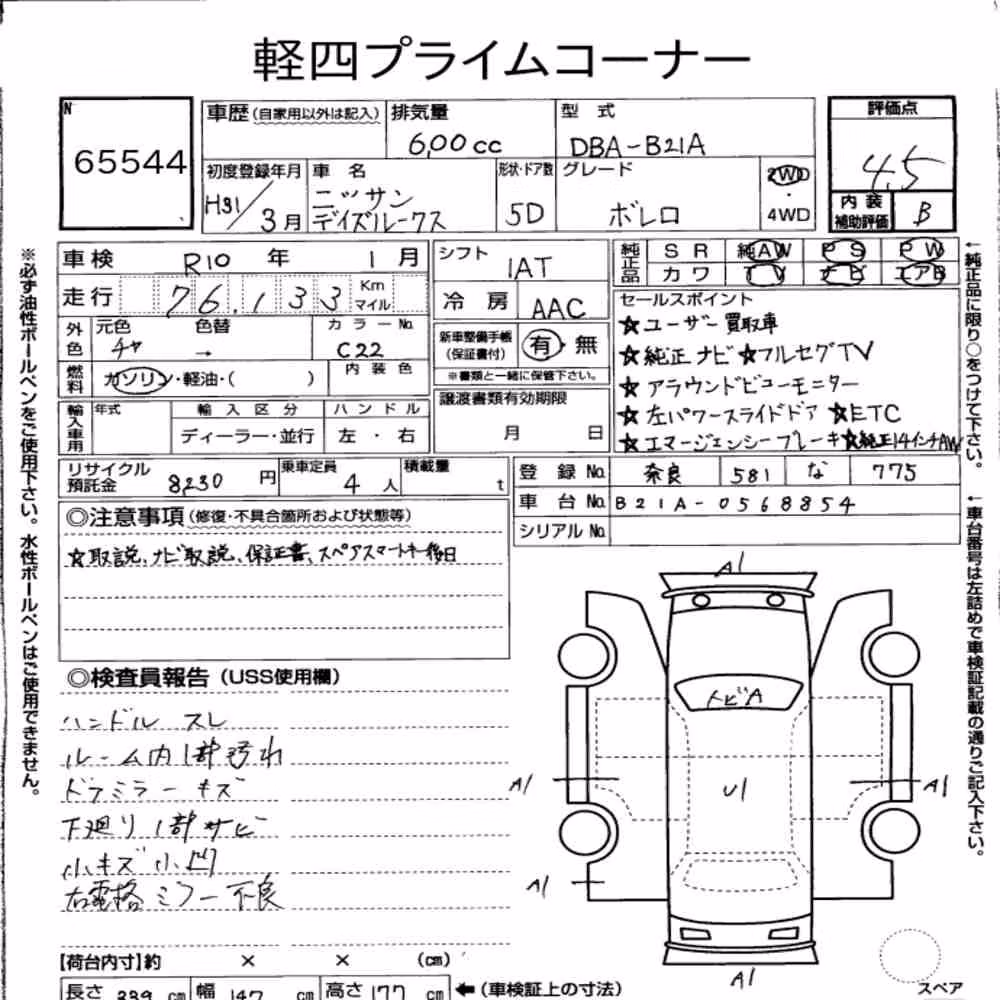 軽四プライムコーナー
N
65544
車歴(自家用以外は記入)
排気量
600cc
型 式
DBA-B21A
評価点
4.5
初度登録年月
H31/3月
車 名
ニッサン
デイズルークス
形状・ドア数
5D
グレード
ボレロ
2WD
・
4WD
内 装
補助評価
B
車検 R10 年 1月
走行 76,133 Km マイル
外色 元色 チャ 色替 → カラーNo. C22
燃料 ガソリン・軽油・( ) 内装色
輸入車用 年式 輸入区分 ハンドル
ディーラー・並行 左・右
シフト IAT
冷房 AAC
新車整備手帳
(保証書付)
有・無
※書類と一緒に保管下さい。
譲渡書類有効期限
月 日
純正品 SR 純AW PS PW
カワ TV ナビ エアB
セールスポイント
☆ユーザー買取車
☆純正ナビ☆フルセグTV
☆アラウンドビューモニター
☆左パワースライドドア ☆ETC
☆エマージェンシーブレーキ☆純正14インチAW
リサイクル
預託金
8230円
乗車定員
4人
積載量
t
登録No. 奈良 581 な 775
車台No. B21A-0568854
シリアルNo.
◎注意事項(修復・不具合箇所および状態等)
☆取説、ナビ取説、保証書、スペアスマートキー後日
◎検査員報告(USS使用欄)
ハンドル スレ
ルーム内1部汚れ
ドアミラーキズ
下廻り1部サビ
小キズ小凹
右電格ミラー不良
A1
トビA
A1
U1
A1
A1
A1
スペア
【荷台内寸】約 × × (cm)
長さ 339 cm 幅 147 cm 高さ 177 cm ←(車検証上の寸法)
※必ず油性ボールペンをご使用下さい。水性ボールペンはご使用できません。
←純正品に限り○をつけて下さい。
←車台番号は左詰めで車検証記載の通りご記入下さい。